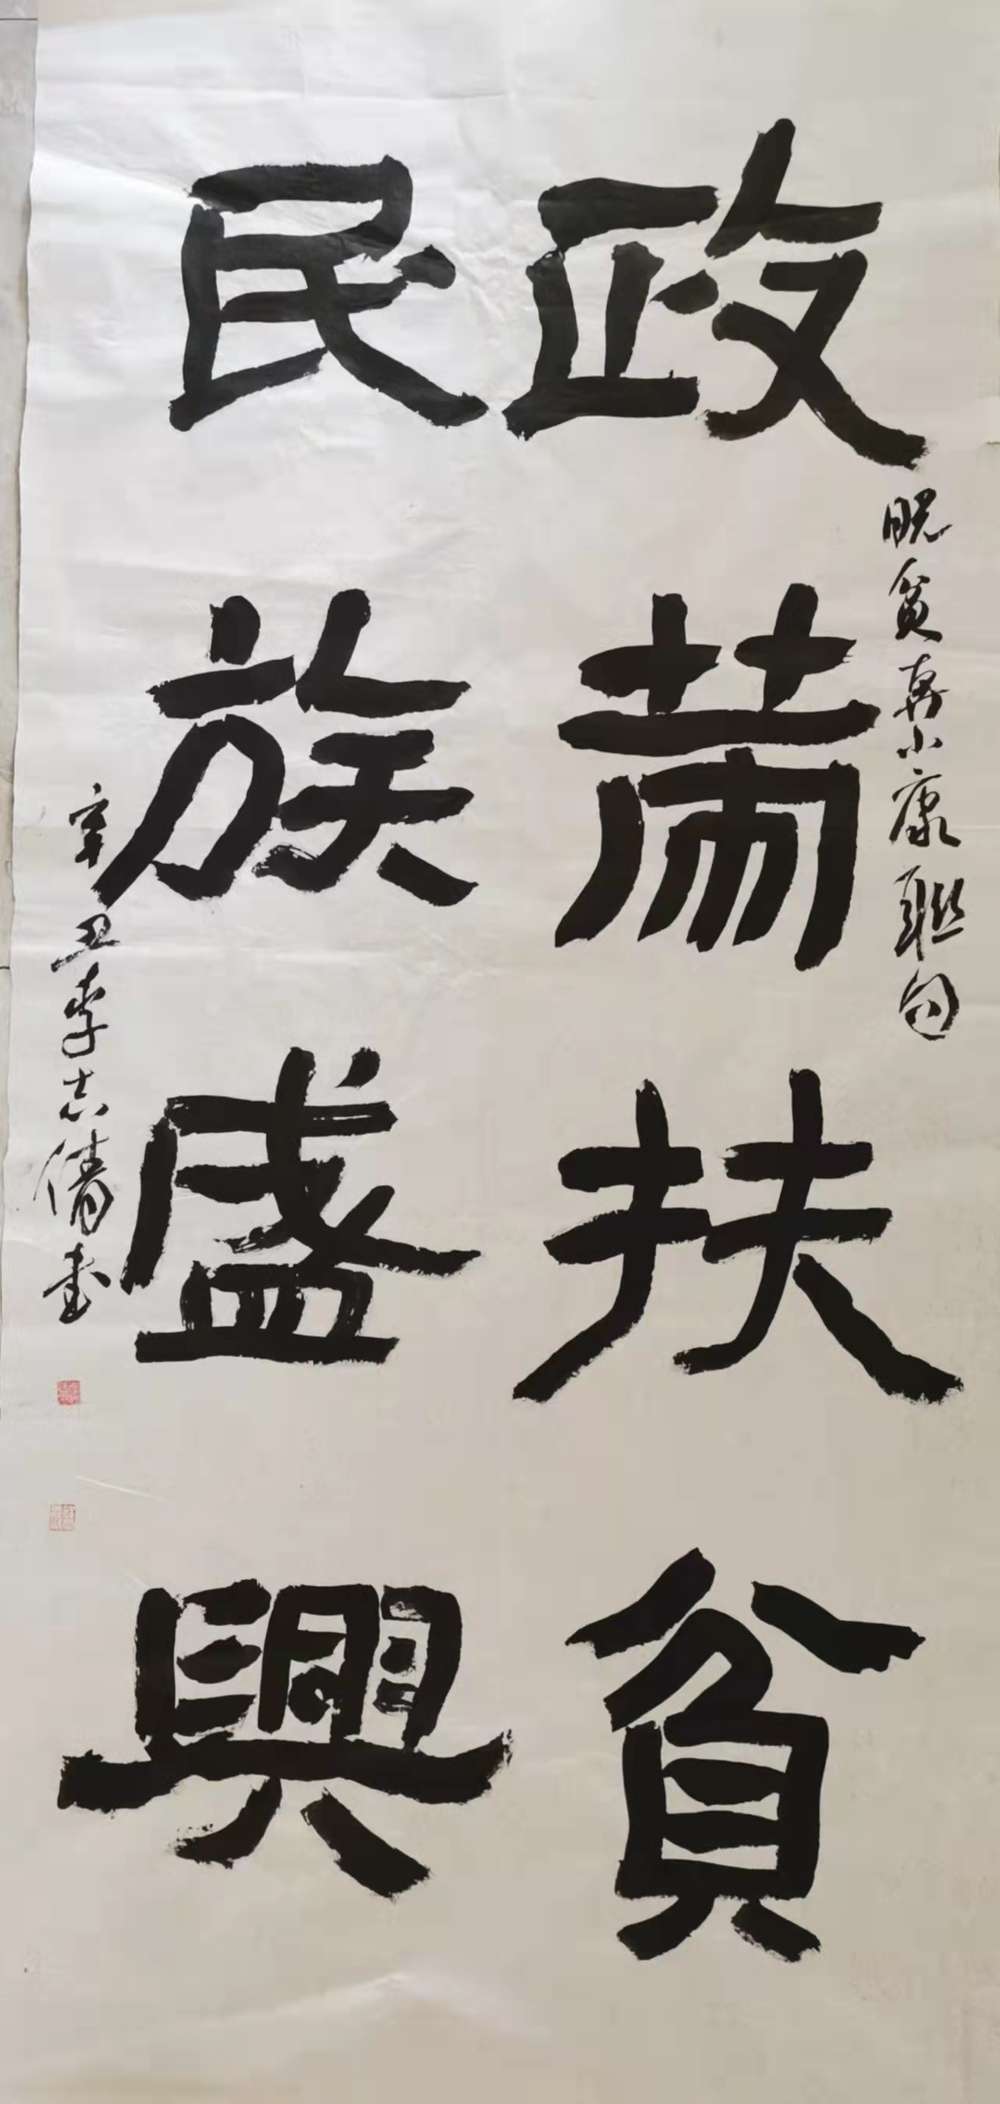 政策扶貧
民族盛興
脱貧奔小康聯句
辛丑李志倩書